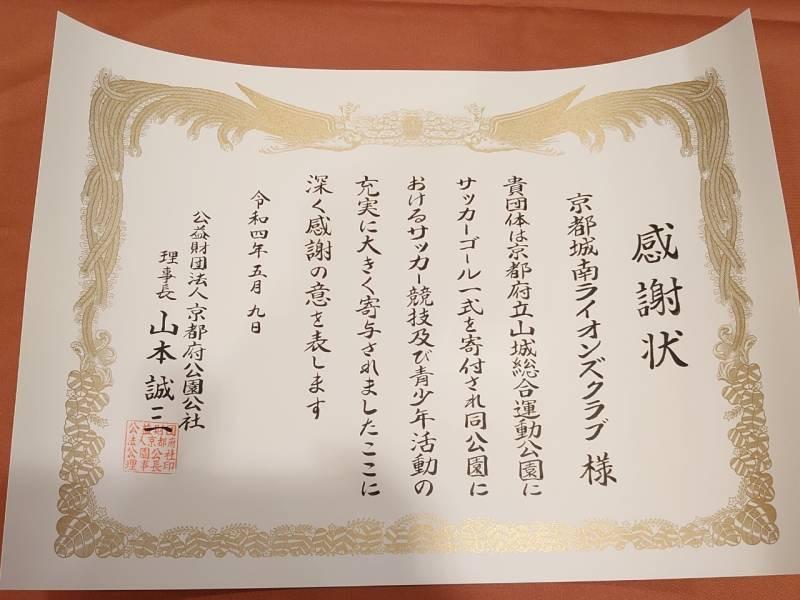 感謝状
京都城南ライオンズクラブ 様
貴団体は京都府立山城総合運動公園に
サッカーゴール一式を寄付され同公園に
おけるサッカー競技及び青少年活動の
充実に大きく寄与されましたここに
深く感謝の意を表します
令和四年五月九日
公益財団法人京都府公園公社
理事長 山本誠三